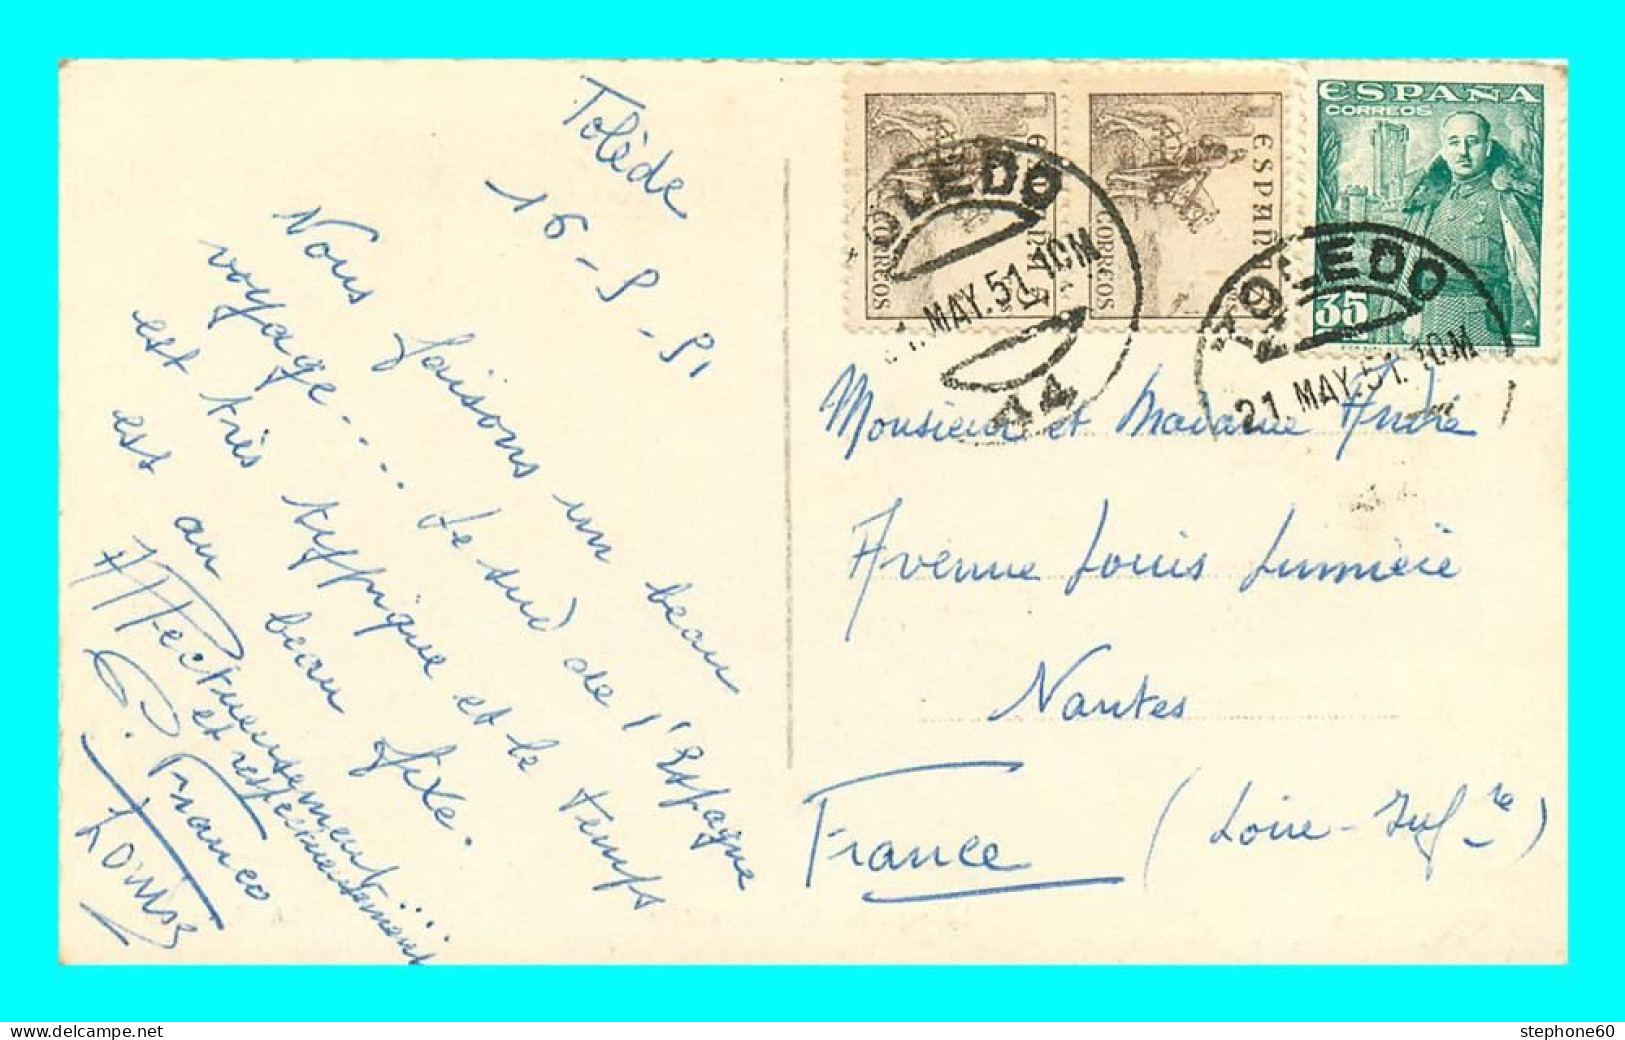 Tolède
16-5-51
Nous faisons un beau
voyage.... Le sud de l'Espagne
est très typique et le temps
est au beau fixe.
Affectueusement
et respectueusement...
P. Franco
ESPAÑA
CORREOS
CORREOS
ESPAÑA
CORREOS
35
TOLEDO
MAY.51.10M
44
TOLEDO
21.MAY.51.10M
Monsieur et Madame André
Avenue Louis Lumière
Nantes
France (Loire-Infre)
stephone60